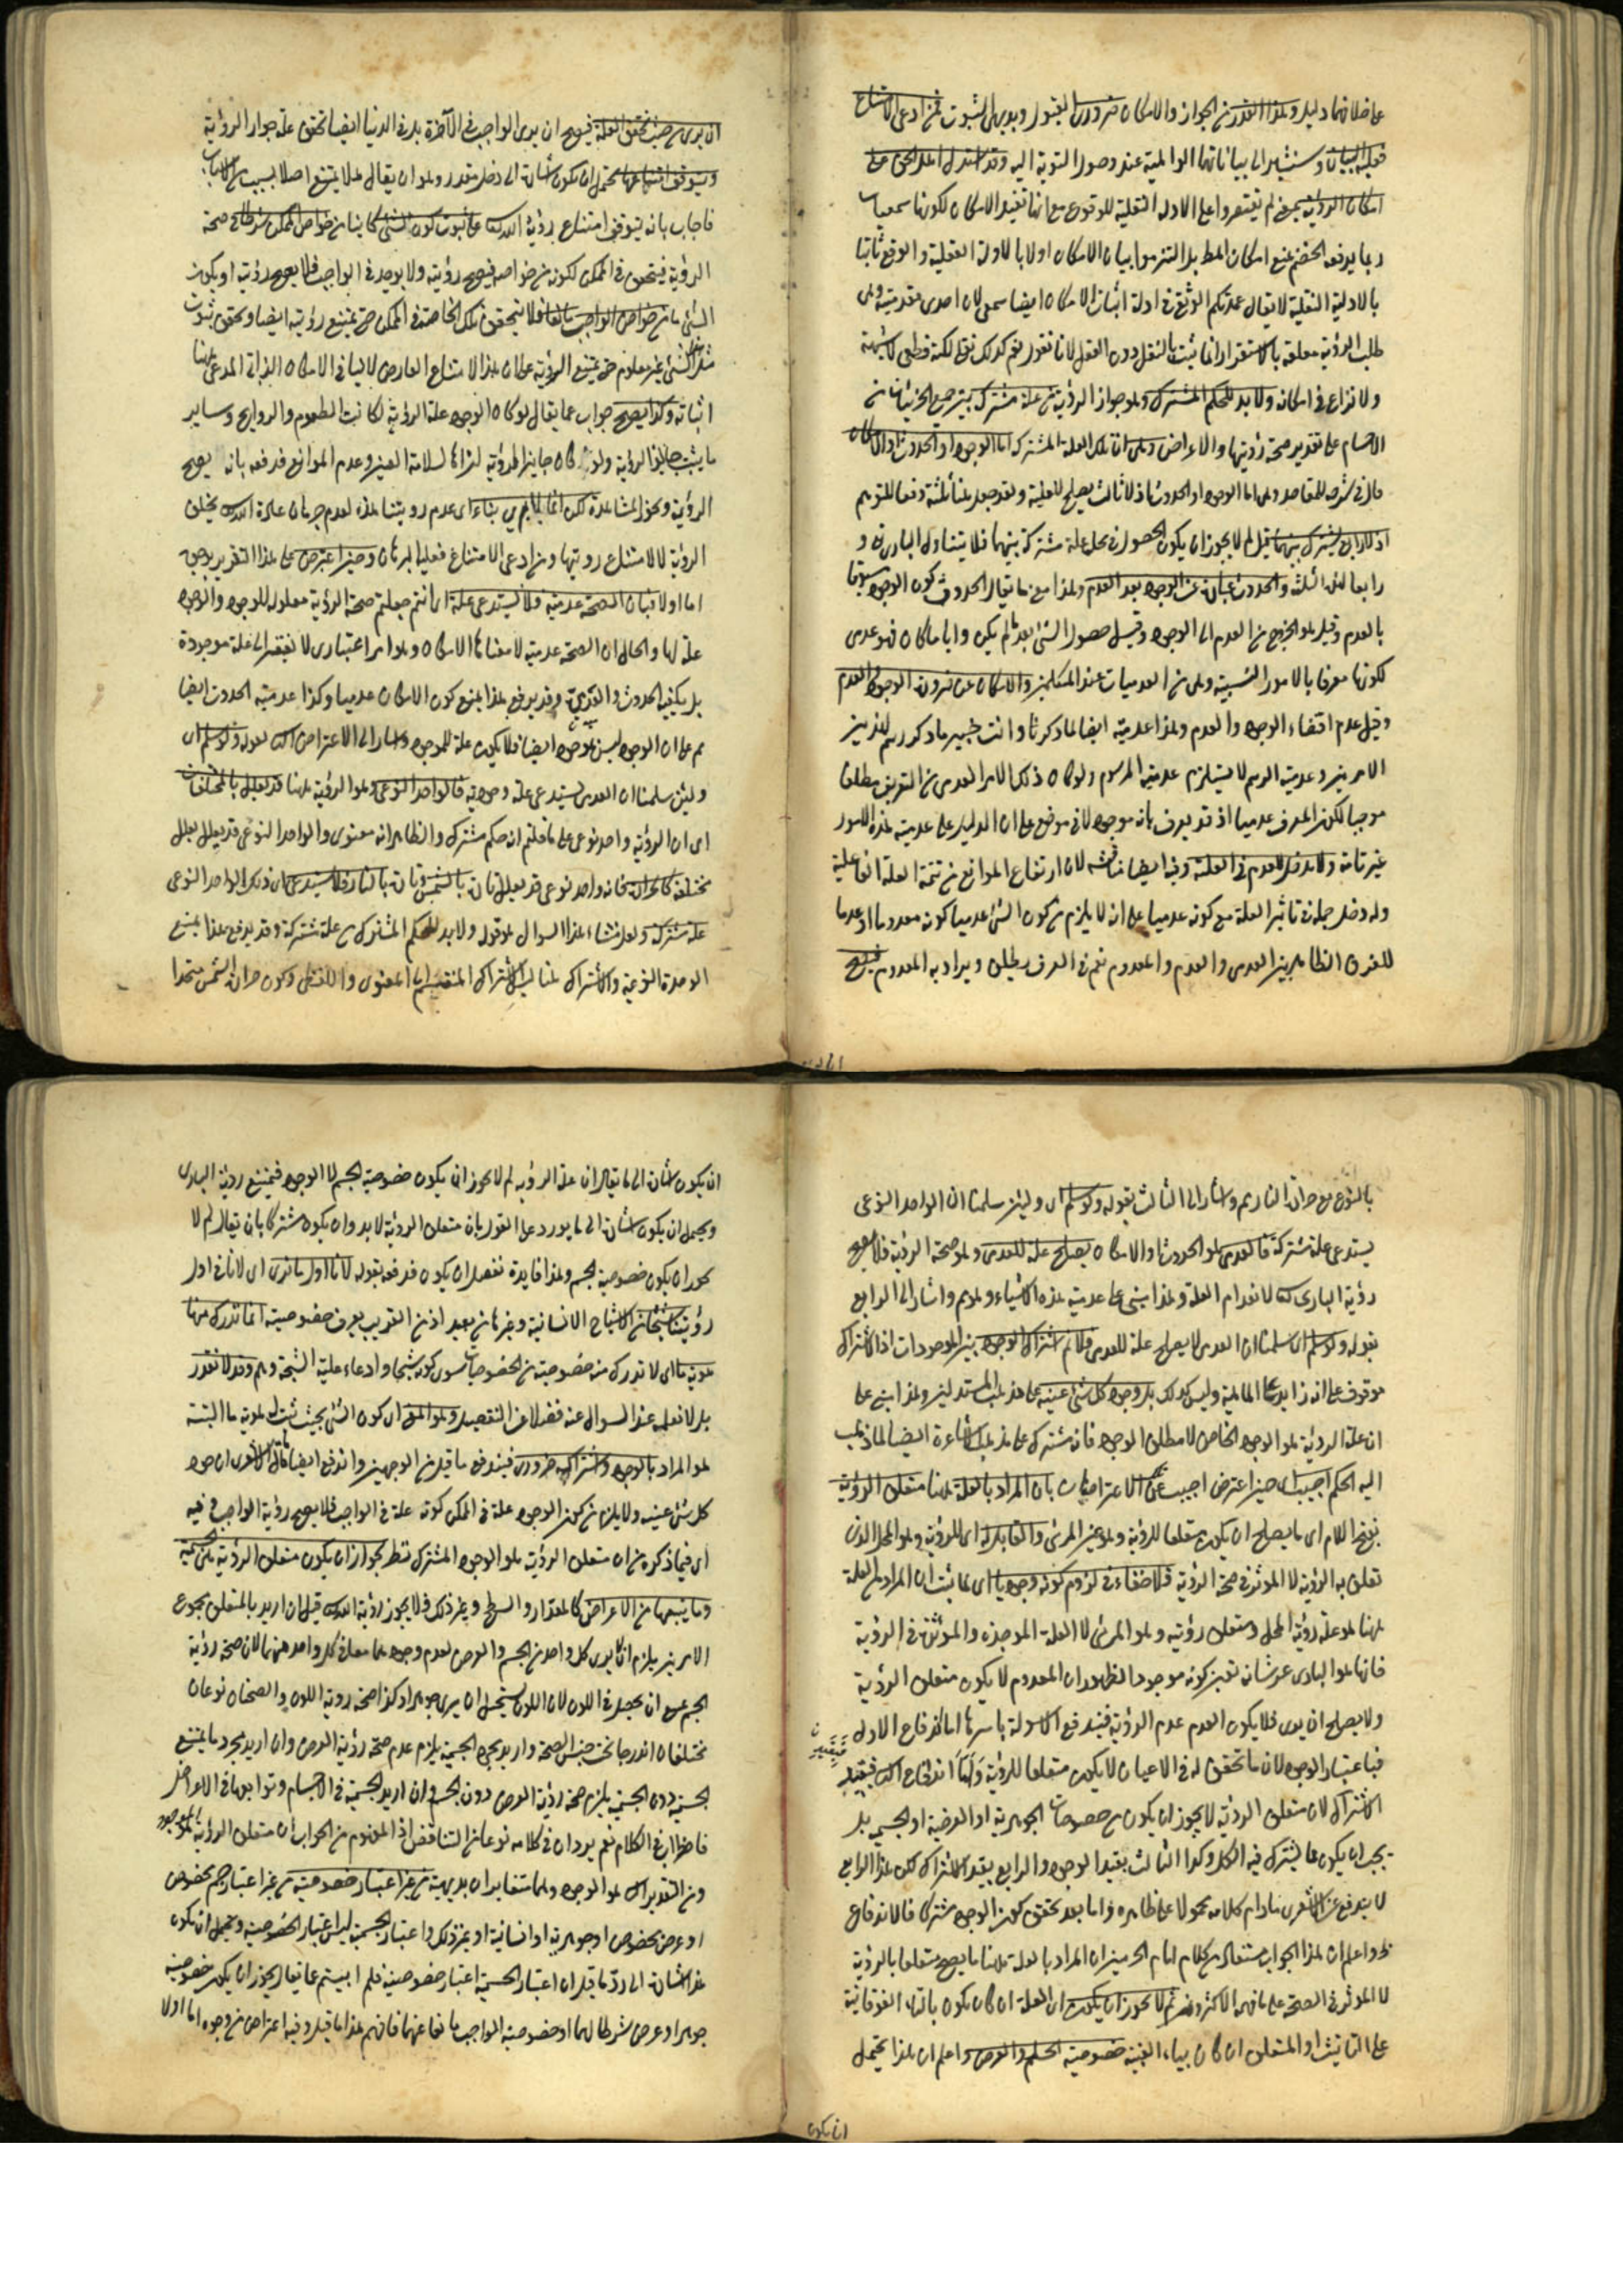 على خلافهما دليل وهذا القدر من الجواز والامكان ضروري القبول وبديهي الثبوت فمن ادعى الامتناع
فعليه البيان وسنشير الى بياناتها الواهية عند وصول التوبة اليه وقد استدل اهل الحق على
امكان الرؤية لم يقتصروا على الادلة النقلية للوقوع مع انها تفيد الامكان لكونها سمعيات
ربما يدفعه الخصم بمنع امكان المط بل التزموا بيان الامكان اولا بالادلة العقلية والوقوع ثانيا
بالادلة النقلية لا يقال عمدتكم الوثقى في ادلة اثبات الامكان ايضا سمعي لان احدى مقدمتيه وهي
طلب الرؤية معلقة بالاستقرار انما يثبت بالنقل دون العقل لانا نقول نعم كذلك لكنه قطعي لا شبهة
ولا نزاع في امكانه ولا بد للحكم المشترك وهو جواز الرؤية من علة مشتركة بين جميع الجزئيات من
الاجسام على تقدير صحة رؤيتها والاعراض وهي اي تلك العلة المشتركة اما الوجود او الحدوث او الامكان
قال في شرح المقاصد وهي اما الوجود او الحدوث اذ لا ثالث يصلح للعلية وقد جعل هنا ثلثة دفعا للتوهم
اذ لا رابع يشترك بينهما قيل لم لا يجوز ان يكون الحصول في محل علة مشتركة بينهما فلا يتناول الباري تع و
رابعا لهذه الثلثة والحدوث عبارة عن الوجود بعد العدم وهذا مع ما يقال الحدوث كون الوجود مسبوقا
بالعدم وقيل هو الخروج من العدم الى الوجود وقيل حصول الشئ بعد ما لم يكن وايا ما كان فهو عدمي
لكونها معرفا بالامور النسبية وهي من العدميات عند المتكلمين والامكان عن ضرورة الوجود والعدم
وقيل عدم اقتضاء الوجود والعدم وهذا عدمية ايضا لما ذكرنا وانت خبير ما ذكر رسم لهذين
الامرين وعدمية الرسم لا يستلزم عدمية المرسوم ولو كان ذلك الامر العدمي من التعريف مطلقا
موجبا لكون المعرف عدميا اذ قد يعرف بانه موجود لا في موضع على ان الدليل على عدمية هذه الامور
غير تامة ولا مدخل للعدم في العلية وفيه ايضا مناقشة لان ارتفاع الموانع من تتمة العلة الفاعلية
وله دخل جملة في تأثير العلة مع كونه عدميا على انه لا يلزم من كون الشئ عدميا كونه معدوما او عدما
للفرق الظاهر بين العدمي والعدم والمعدوم نعم في العرف يطلق ويراد به المعدوم فيصح
ان يرى من حيث تحقق العلة فيصح ان يرى الواجب في الآخرة بل في الدنيا ايضا لتحقق علة جواز الرؤية
ويتوقف امتناعها يحتمل ان يكون اشارة الى دخل مقدر وهو ان يقال هلا يمتنع اصلا بسبب من الاسباب
فاجاب بانه يتوقف امتناع رؤية الله تعالى على ثبوت كون الشئ كائنا من خواص الممكن شرطا في صحة
الرؤية فيتحقق في الممكن لكونه من خواصه فيصح رؤيته ولا يوجد في الواجب فلا يصح رؤيته او يكون
الشئ مانع من خواص الواجب مانعا فلا يتحقق تلك الخاصة في الممكن حتى يمتنع رؤيته ايضا وتحقق ثبوت
مثل ذلك الشئ غير معلوم حتى يمتنع الرؤية على ان هذا الامتناع العارض لا ينافي الامكان الذاتي المدعى ههنا
اثباته وكذا يصح جواب عما يقال لو كان الوجود علة الرؤية لكانت الطعوم والروايح وساير
ما يثبت جايز الرؤية ولو كان جايز الرؤية لنراها لسلامة العين وعدم الموانع فدفعه بانه يصح
الرؤية ويجوز المشاهدة لكن انما لا يرى بناء اي عدم رؤيتنا هذه لعدم جريان عادة الله بخلق
الرؤية لا لامتناع رويتها ومن ادعى الامتناع فعليه البرهان وحين اعترض على هذا التقرير بوجوه
اما اولا فبان الصحة عدمية فلا يستدعي علة اي انتم جعلتم صحة الرؤية معلولة للوجود والوجود
علة لها والحال ان الصحة عدمية لان معناها الامكان وهو امر اعتباري لا يفتقر الى علة موجودة
بل يكفيه الحدوث وقد يدفع هذا بمنع كون الامكان عدميا وكذا عدمية الحدوث ايضا
ثم على ان الوجود ليس بموجود ايضا فلا يكون علة للموجود واشار الى الاعتراض الثاني بقوله ولو سلم اي
ولئن سلمنا ان العدمي يستدعي علة وجودية فالواحد النوعي وهو الرؤية ههنا قد يعلل بالمختلفات
اي ان الرؤية واحد نوعي على ما قلتم انه حكم مشترك والظاهر انه معنوي والواحد النوعي قد يعلل بعلل
مختلفة كالحرارة فانه واحد نوعي قد يعلل تارة بالشمس وتارة بالنار فلا يستدعي اي ذلك الواحد النوعي
علة مشتركة ولعل منشاء هذا السوال هو قوله ولا بد للحكم المشترك من علة مشتركة وقد يدفع هذا بمنع
الوحدة النوعية والاشتراك هنا ليس الاشتراك المنقسم الى المعنوي واللفظي وكون حرارة الشمس متحدا
بالنوع مع حرارة النار ثم واشار الى الثالث بقوله ولو سلم اي ولئن سلمنا ان الواحد النوعي
يستدعي علة مشتركة فالعدمي هو الحدوث او الامكان يصلح علة للعدمي وهو صحة الرؤية فلا يصح
رؤية الباري تعالى لانعدام العلة وهذا مبني على عدمية هذه الاشياء وهو ثم واشار الى الرابع
بقوله ولو سلم اي سلمنا ان العدمي لا يصلح علة للعدمي فلا نم اشتراك الوجود بين الموجودات اذ الاشتراك
موقوف على انه زايد على الماهية وليس كذلك بل وجود كل شئ عينه على مذهب المستدلين وهذا ابني على
ان علة الرؤية هو الوجود الخاص لا مطلق الوجود فانه مشترك على مذهب الاشاعرة ايضا لما ذهب
اليه الحكم اجيب اي حين اعترض اجيب عن الاعتراضات بان المراد بالعلة ههنا متعلق الرؤية
بفتح اللام اي ما يصلح ان يكون متعلقا للرؤية وهو عين المرئى والقابل له اي للرؤية وهو المحل الذي
تعلق به الرؤية لا المؤثر في صحة الرؤية فلا خفاء في لزوم كونه وجوديا اي لما ثبت ان المراد من العلة
ههنا هو علة رؤية المحل ومتعلق رؤيته وهو المرئى لا العلة الموجدة والمؤثرة في الرؤية
فانها هو الباري عز شانه تعين كونه موجودا لظهور ان المعدوم لا يكون متعلق الرؤية
ولا يصلح ان يرى فلا يكون العدم عدم الرؤية فيندفع الاسولة باسرها اما اندفاع الاول
فباعتبار الوجود لان ما تحقق له في الاعيان لا يكون متعلقا للرؤية واما اندفاع الثاني فبقيد
الاشتراك لان متعلق الرؤية لا يجوز ان يكون من خصوصيات الجوهرية او العرضية او الجسم بل
يجب ان يكون مما يشترك فيه الكل وكذا الثالث بقيد الوجود والرابع بقيد الاشتراك لكن هذا الرابع
لا يندفع عن الاشعري مادام كلامه محمولا على ظاهره واما بعد تحقق كون الوجود مشتركا فالاندفاع
ظ واعلم ان هذا الجواب مستفاد من كلام امام الحرمين ان المراد بالعلة ههنا ما يصلح متعلقا بالرؤية
لا المؤثر في الصحة على ما فهمه الاكثرون ثم لا يجوز ان يكون اي العلة ان كان يكون بالتاء الفوقانية
على التانيث او المتعلق ان كان بياء الغيبة خصوصية الجسم والعرض واعلم ان هذا يحتمل
ان يكون
ان يكون اشارة الى ما يقال ان علة الرؤية لم لا يجوز ان يكون خصوصية الجسم لا الوجود فيمتنع رؤية الباري
ويحتمل ان يكون اشارة الى ما يورد على القول بان متعلق الرؤية لا بد وان يكون مشتركا بان يقال لم لا
يجوز ان يكون خصوصية الجسم ولهذا فايدة تفصيل ان يكون فدفعه بقوله لانا اول ما نرى اي لانا في اول
رؤيتنا شبحا من الاشباح الانسانية وغيرها من بعيد اذ من القريب يعرف خصوصيته انما ندرك منها
هوية ما اي لا ندرك منه خصوصية من الخصوصيات سوى كونه شبحا وادعاء علية الشبحية وهم وقد لا نقدر
بل لا نعلمه عند السوال عنه فضلا عن التفصيل وهو المعنى اي كون الشئ بحيث ثبت له هوية ما البتة
هو المراد بالوجود واشتراكه ضروري فيندفع ما قيل من الوجهين واندفع ايضا ما قال الاشعري ان وجود
كل شئ عينه ولا يلزم من كون الوجود علة في الممكن كونه علة في الواجب فلا يصح رؤية الواجب وفيه
اي فيما ذكروه من ان متعلق الرؤية هو الوجود المشترك نظر لجواز ان يكون متعلق الرؤية هي الجسمية
وما يتبعها من الاعراض كالمقدار والسطح وغير ذلك فلا يجوز رؤية الله تعالى قيل ان اريد بالمتعلق مجموع
الامرين يلزم ان لا يرى كل واحد من الجسم والعرض لعدم وجودهما معا في كل واحد منهما لان صحة رؤية
الجسم يمنع ان يحصل في اللون لان اللون يستحيل ان يرى جوهرا وكذا صحة روية اللون والصحتان نوعان
مختلفان اندرجا تحت جنس الصحة واريد بجزء الجسمية يلزم عدم صحة رؤية العرض وان اريد مجرد ما يتبع
الجسمية دون الجسمية يلزم صحة رؤية العرض دون الجسم وان اريد الجسمية في الاجسام وتوابعها في الاعراض
فاضطراب في الكلام نعم يرد ان في كلامه نوعا من التناقض اذ المفهوم من الجواب ان متعلق الرؤية هو الوجود
ومن التقدير ان هو الوجود وهما متغايران بديهية من غير اعتبار خصوصيته من غير اعتبار جسم مخصوص
او عرض مخصوص او جوهرية او انسانية او غير ذلك واعتبار الجسمية ليس اعتبار الخصوصية ويحتمل ان يكون
هذا اشارة الى رد ما قيل ان اعتبار الجسمية اعتبار خصوصيته فلم ابيتم عما يقال يجوز ان يكون خصوصية
جوهرا وعرض شرطا لهما او خصوصية الواجب مانعا عنهما فافهم هذا ما قيل وفيه اعتراض من وجوه اما اولا